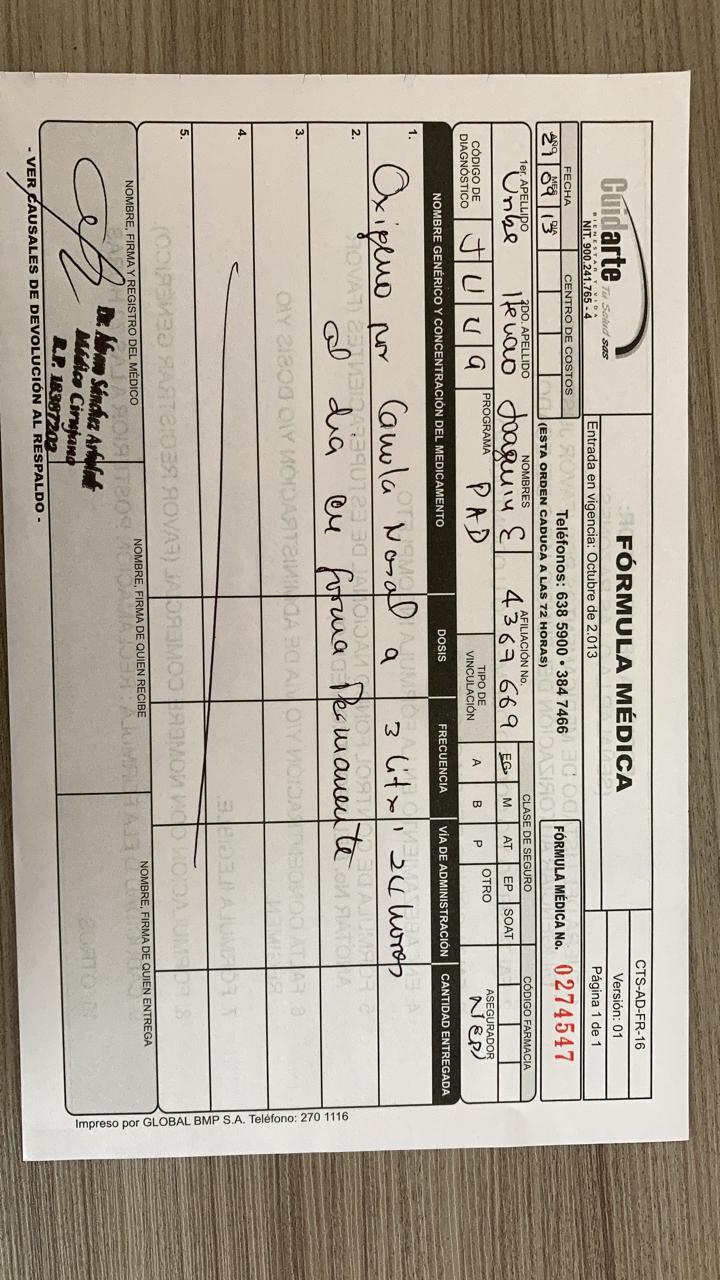 Cuidarte Tu Salud sas
BIENESTAR Y VIDA
NIT. 900.241.765 - 4
FÓRMULA MÉDICA
CTS-AD-FR-16
Versión: 01
Entrada en vigencia: Octubre de 2.013
Página 1 de 1
FECHA
CENTRO DE COSTOS
AÑO MES DIA
21 09 13
Teléfonos: 638 5900 • 384 7466
(ESTA ORDEN CADUCA A LAS 72 HORAS)
FÓRMULA MÉDICA No. 0274547
1er. APELLIDO 2DO. APELLIDO NOMBRES AFILIACIÓN No. CLASE DE SEGURO CÓDIGO FARMACIA
Uribe Henao Joaquin E 4367669 EG M AT EP SOAT
CÓDIGO DE DIAGNÓSTICO J449 PROGRAMA PAD TIPO DE VINCULACIÓN A B P OTRO ASEGURADOR
NOMBRE GENÉRICO Y CONCENTRACIÓN DEL MEDICAMENTO DOSIS FRECUENCIA VÍA DE ADMINISTRACIÓN CANTIDAD ENTREGADA
1. Oxigeno por Canula Nasal a 3 lit x' 24 horas
2. al dia en forma Permanente
3.
4.
5.
NOMBRE, FIRMA Y REGISTRO DEL MÉDICO NOMBRE, FIRMA DE QUIEN RECIBE NOMBRE, FIRMA DE QUIEN ENTREGA
Dr. Sánchez
Médico Cirujano
R.P. 18387202
- VER CAUSALES DE DEVOLUCIÓN AL RESPALDO -
Impreso por GLOBAL BMP S.A. Teléfono: 270 1116